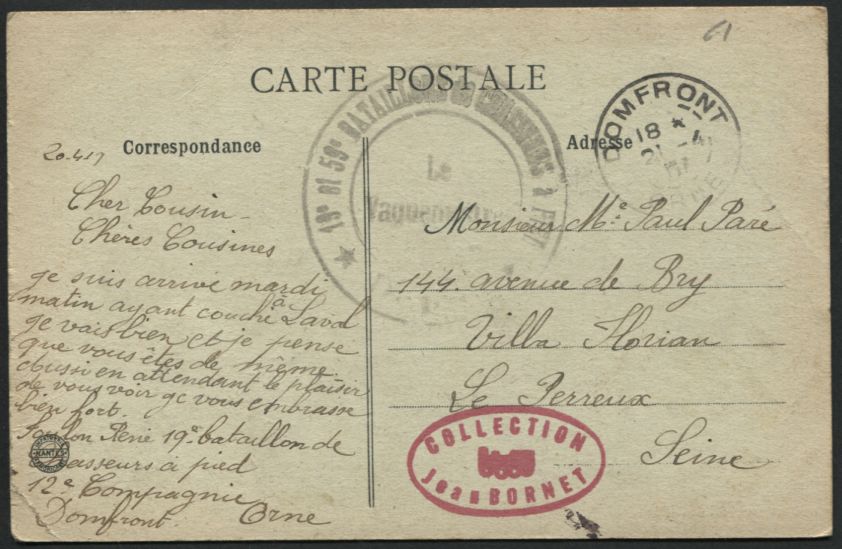 CARTE POSTALE
Correspondance
Adresse
20.4.17
Cher Cousin
Chères Cousines
je suis arrivé mardi
matin ayant couché à Laval
je vais bien et je pense
que vous êtes de même
aussi en attendant le plaisir
de vous voir je vous embrasse
bien fort.
René 19e bataillon de
chasseurs à pied
12e Compagnie
Domfront Orne
★ 19e et 59e BATAILLONS DE CHASSEURS à PIED
Le
Vaguemestre
DOMFRONT
18 *
21 - 4
ORNE
Monsieur Me Paul Paré
144. avenue de Bry
Villa Florian
Le Perreux
Seine
COLLECTION
Jean BORNET
NANTES